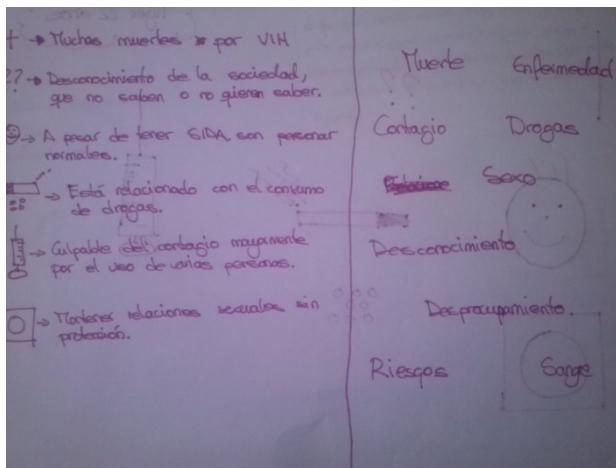 + → Muchas muertes por VIH
?? → Desconocimiento de la sociedad,
que no saben o no quieren saber.
→ A pesar de tener SIDA son personas
normales.
→ Está relacionado con el consumo
de drogas.
→ Culpable del contagio mayormente
por el uso de varias personas.
→ Mantener relaciones sexuales sin
protección.
Muerte Enfermedad
Contagio Drogas
Sexo
Desconocimiento
Despreocupamiento.
Riesgos Sangre